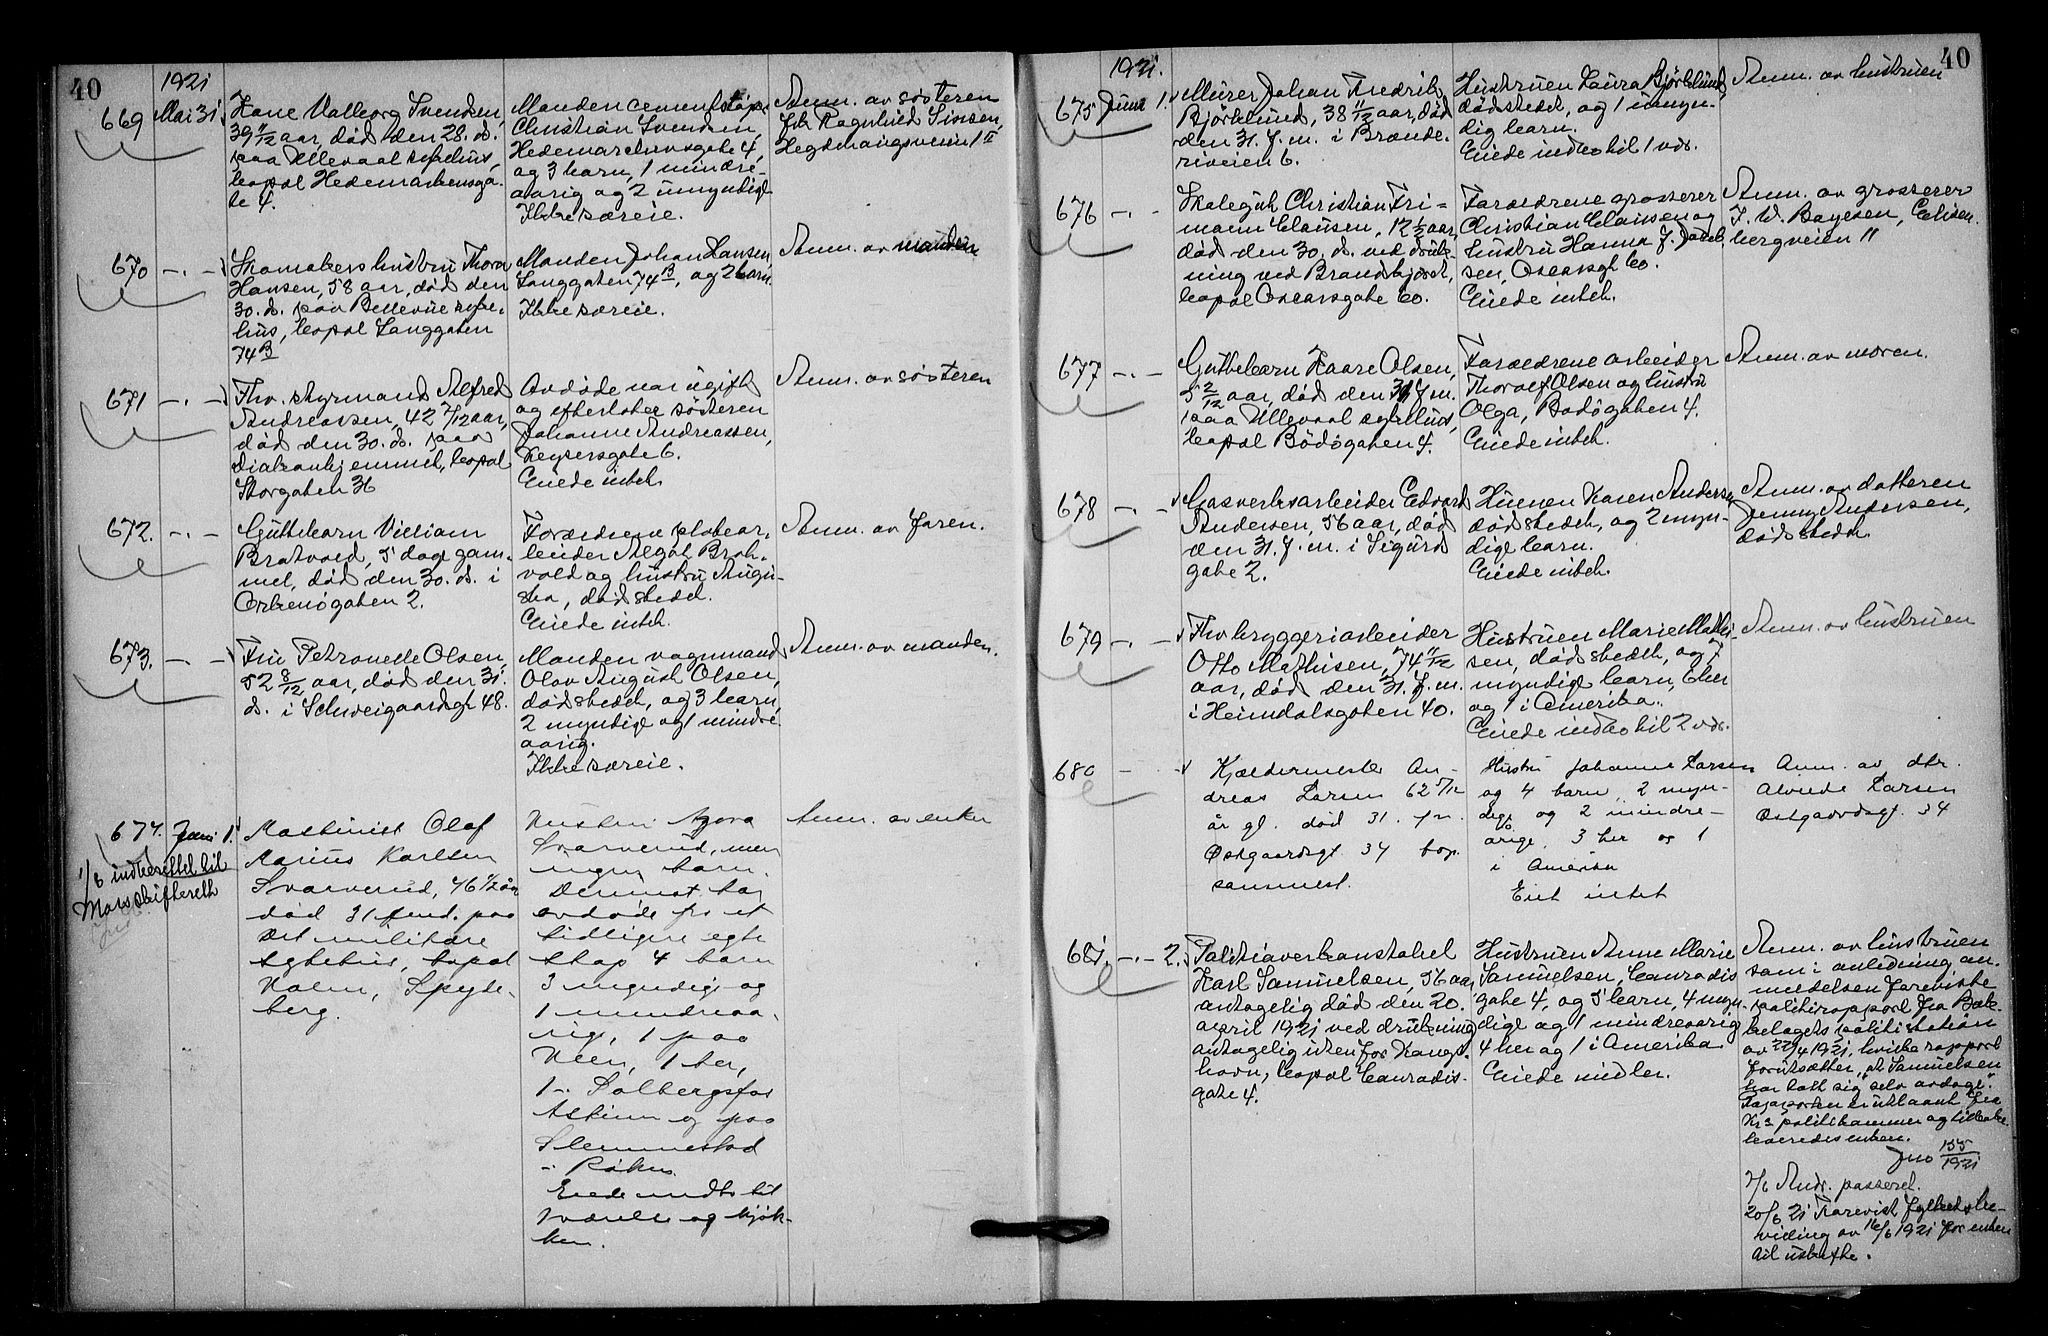 40
1921
669 Mai 31 Kone Valborg Svendsen,
39 11/12 aar, død den 28. ds.
paa Ullevaal sykehus,
bopæl Hedemarkensga-
te 4.
Manden cementstøper
Christian Svendsen,
Hedemarkensgate 4,
og 3 barn, 1 mindre-
aarig og 2 umyndige
Ikke særeie.
Anm. av søsteren
frk Ragnhild
Hegdehaugsveien 1 II
670 -.- Skomakers hustru Thora
Hansen, 58 aar, død den
30. ds. paa Bellevue syke-
hus, bopæl Langgaten
74 B
Manden Johan Hansen
Langgaten 74 B, og 2 barn.
Ikke særeie.
Anm. av manden
671 -.- Fhv. styrmand Alfred
Andreassen, 42 7/12 aar,
død den 30. ds. paa
Diakonhjemmet, bopæl
Storgaten 36
Avdøde var ugift
og efterlater søsteren
Johanne Andreassen,
Keysersgate 6.
Eiede intet.
Anm. av søsteren
672. -.- Guttebarn William
Bratvold, 5 dage gam-
mel, død den 30. ds. i
Orknøgaten 2.
Forældrene platear-
beider Algot Brat-
vold og hustru Augu-
sta, dødsstedet.
Eiede intet.
Anm. av faren.
673. -.- Fru Petronelle Olsen,
52 8/12 aar, død den 31.
ds. i Schweigaardsgt 48.
Manden vognmand
Olav August Olsen,
dødsstedet, og 3 barn,
2 myndige og 1 mindre-
aarig.
Ikke særeie.
Anm. av manden.
674. Juni 1. Maskinist Olaf
Marius Karlsen
Svarverud, 46 1/2 år
død 31 f.md. paa
Det militære
sykehus, bopæl
Holm, Spyde-
berg.
1/6 indberettet til
Moss skifteret
Hustru Agora
Svarverud, men
ingen barn.
Derimot har
avdøde fra et
tidligere egte
skap 4 barn
3 myndige og
1 mindreaa-
rig, 1 paa
1 her,
1 -. Solbergsfos
Askim og paa
Slemmestad
-. Røken
Eiede indbo til
1 værelse og kjøk-
ken.
Anm. av enken
40
1921.
675 Juni 1. Murer Johan Fredrik
Bjørklund, 38 11/12 aar, død
den 31. f.m. i Brende-
riveien 6.
Hustruen Laura Bjørklund
dødsstedet, og 1 umyn-
dig barn.
Eiede indbo til 1 vær.
Anm. av hustruen
676 -.- Skolegut Christian Fri-
mann Clausen, 12 1/2 aar,
død den 30. ds. ved druk-
ning ved Brandskjæret,
bopæl Oscarsgate 60.
Forældrene grosserer
Christian Clausen og
hustru Hanna f. Jacob-
sen, Oscarsgt 60.
Eiede intet.
Anm. av grosserer
J. W. Boyesen, Eilisen-
bergveien 11
677 -.- Guttebarn Kaare Olsen,
5 2/12 aar, død den 31 f.m.
paa Ullevaal sykehus,
bopæl Bodøgaten 4.
Forældrene arbeider
Thoralf Olsen og hustru
Olga, Bodøgaten 4.
Eiede intet.
Anm. av moren.
678 -.- Gasverksarbeider Edvard
Andersen, 56 aar, død
den 31. f.m. i Sigurds
gate 2.
Hustruen Karen Andersen
dødsstedet, og 2 myn-
dige barn.
Eiede intet.
Anm. av datteren
Jenny Andersen,
dødsstedet.
679 -.- Fhv. bryggeriarbeider
Otto Mathisen, 74 11/12
aar, død den 31. f.m.
i Heimdalsgaten 40.
Hustruen Marie Mathi-
sen, dødsstedet, og 7
myndige barn, 6 her
og 1 i Amerika.
Eiede indbo til 2 vær.
Anm. av hustruen
680 - Kjældermester An-
dreas Larsen 62 5/12
år gl. død 31. f.m.
Østgaardsgt. 34 bop.
sammest.
Hustru Johanne Larsen
og 4 barn, 2 myn-
dige og 2 mindre-
årige, 3 her og 1
i Amerika
Eiet intet
Anm. av dtr.
Alvilde Larsen
Østgaardsgt. 34
681. -.- 2. Politioverkonstabel
Karl Samuelsen, 56 aar,
antagelig død den 20.
april 1921 ved drukning
antagelig utenfor Kongs-
havn, bopæl Conradis-
gate 4.
Hustruen Anne Marie
Samuelsen, Conradis
gate 4, og 5 barn, 4 myn-
dige og 1 mindreaarig
4 her og 1 i Amerika
Eiede midler.
Anm. av hustruen
som i anledning an-
meldelsen foreviste
politirapport fra Bæk-
kelagets politistation
av 22/4 1921, hvilke rapport
forutsætter, "at Samuelsen
har tatt sig selv avdage".
Rapporten er utlaant fra
Kr.a politikammer og tilbake-
leveredes enken.
Jno 155/1921
7/6 Andr. passeret.
20/6 21 Forevist
av 16/6 1921 for enken